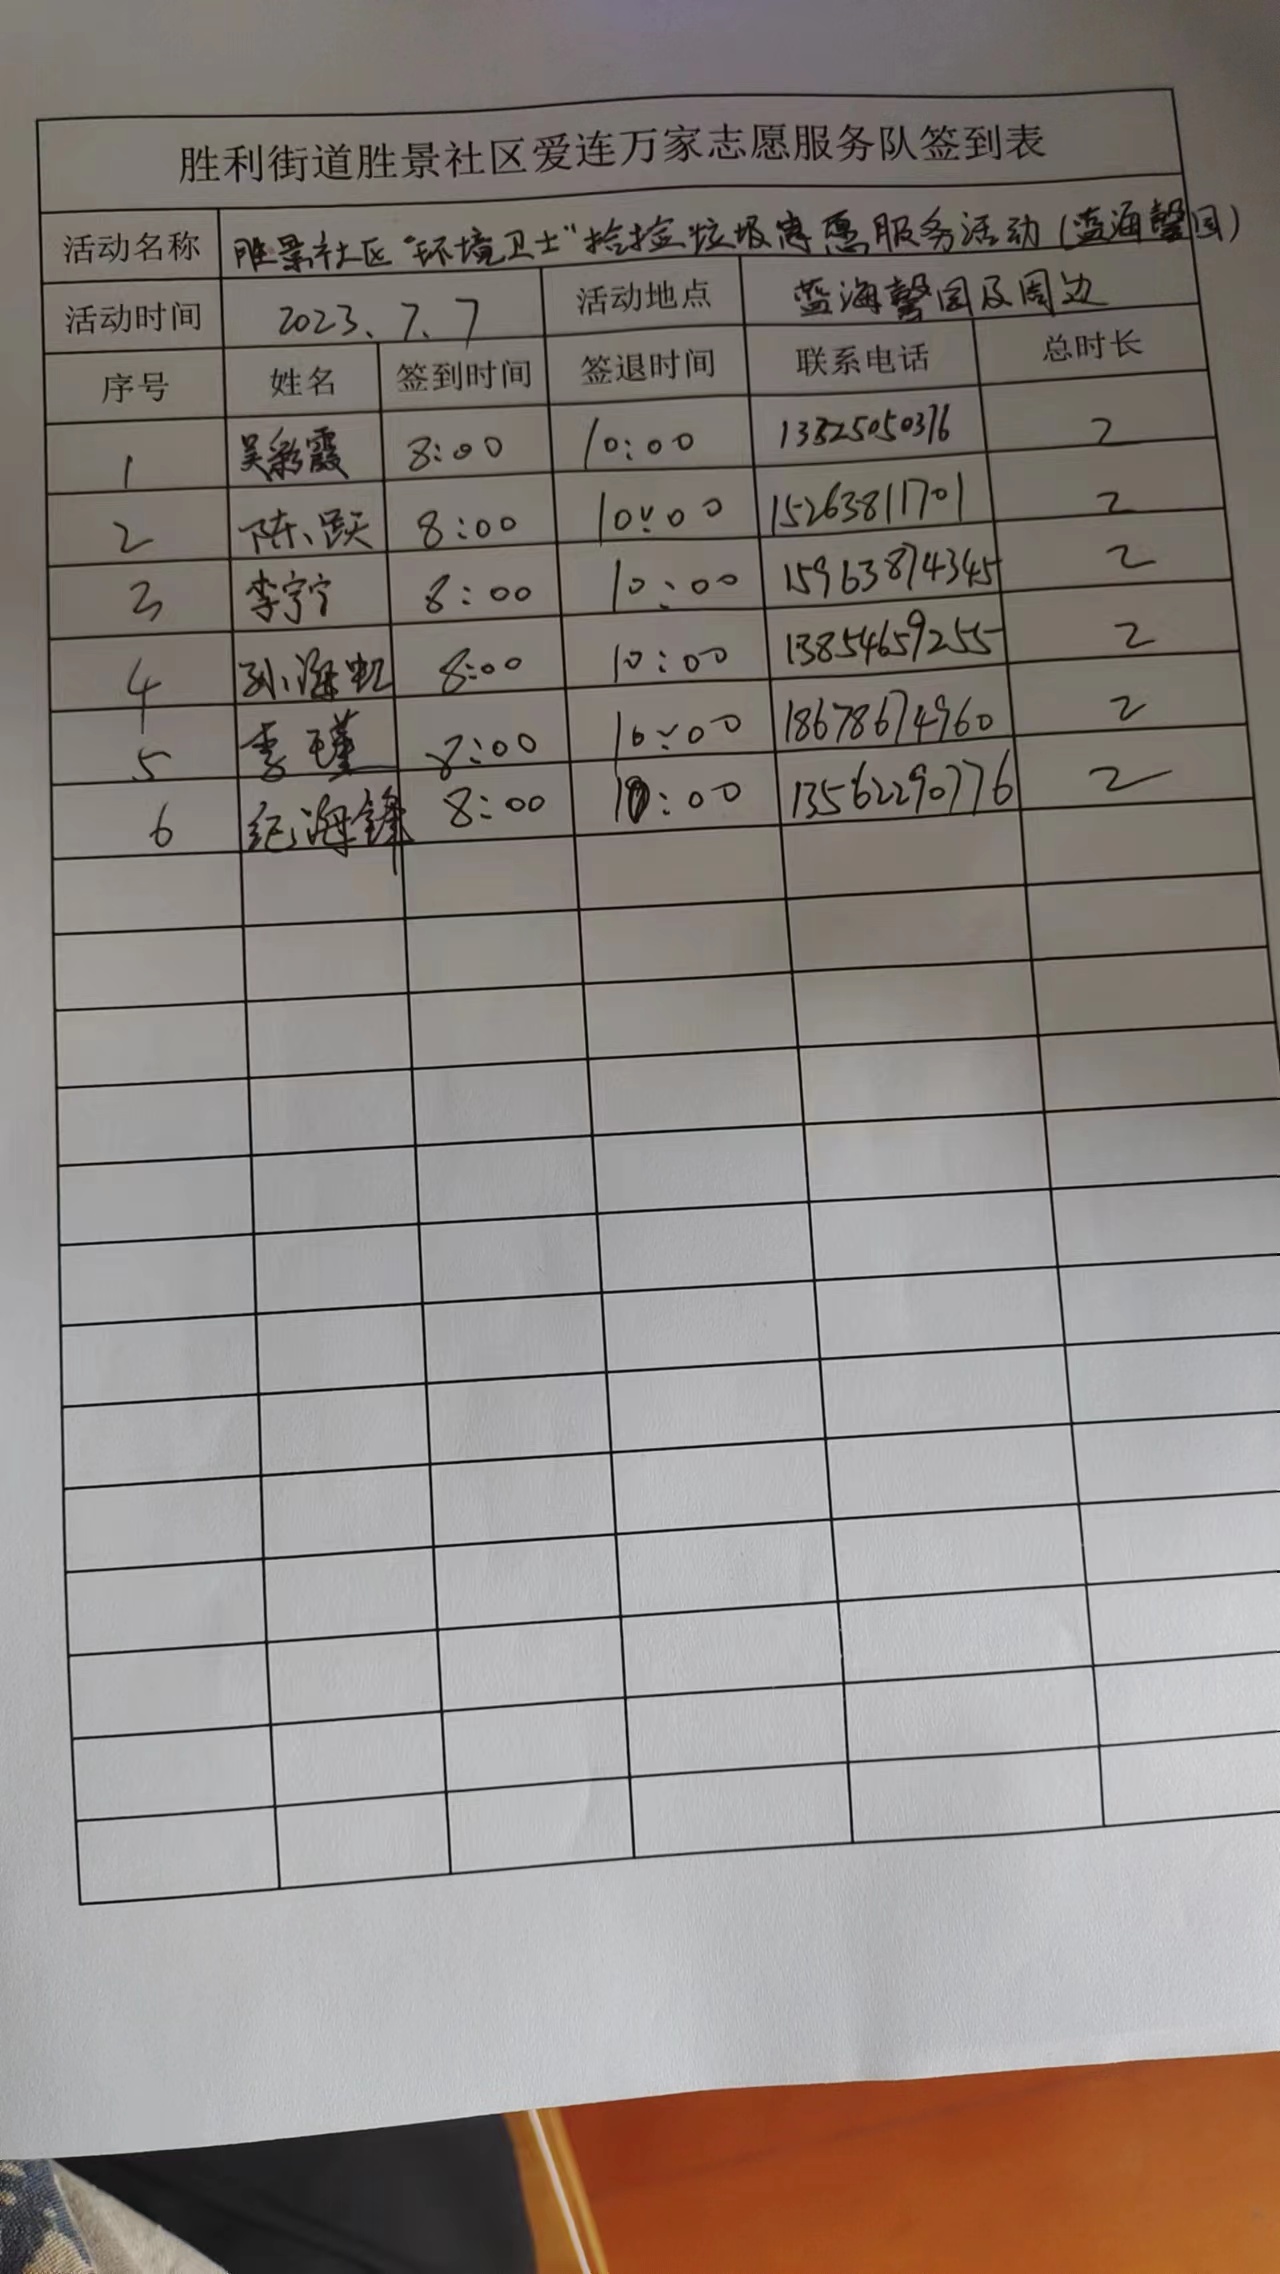 胜利街道胜景社区爱连万家志愿服务队签到表
活动名称 胜景社区“环境卫士”捡拾垃圾志愿服务活动(蓝海馨园)
活动时间 2023.7.7 活动地点 蓝海馨园及周边
序号 姓名 签到时间 签退时间 联系电话 总时长
1 吴彩霞 8:00 10:00 2
2 陈跃 8:00 10:00 15263811701 2
3 李宁宁 8:00 10:00 15963874345 2
4 孙海 8:00 10:00 13854659255 2
5 李瑾 8:00 10:00 18678674960 2
6 纪海锋 8:00 10:00 13562290776 2